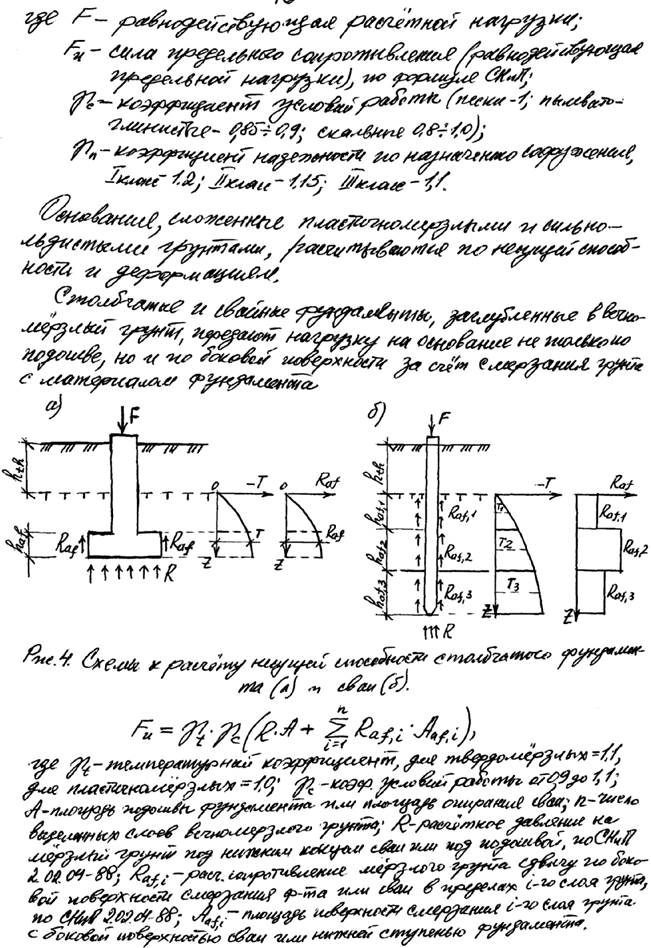 где F – равнодействующая расчётной нагрузки;
Fu – сила предельного сопротивления (равнодействующая
предельной нагрузки), по формуле СНиП;
γc – коэффициент условий работы (пески – 1; пылевато-
глинистые – 0,85÷0,9; скальные 0,8÷1,0);
γn – коэффициент надежности по назначению сооружения,
I класс – 1.2; II класс – 1,15; III класс – 1,1.
Основания, сложенные пластичномерзлыми и сильно-
льдистыми грунтами, рассчитываются по несущей способ-
ности и деформациям.
Столбчатые и свайные фундаменты, заглубленные в вечно-
мёрзлый грунт, передают нагрузку на основание не только по
подошве, но и по боковой поверхности за счёт смерзания грунта
с материалом фундамента
а)
F
hth
haf
Raf
Raf
R
0
-T
T
Z
0
Raf
Raf
Z
б)
F
hth
haf,1
haf,2
haf,3
Raf,1
Raf,2
Raf,3
R
-T
T1
T2
T3
Z
Raf
Raf,1
Raf,2
Raf,3
Z
Рис. 4. Схемы к расчёту несущей способности столбчатого фундамен-
та (а) и сваи (б).
Fu = γt · γc (R · A + n Σ i=1 Raf,i · Aaf,i),
где γt – температурный коэффициент, для твердомёрзлых = 1,1,
для пластичномёрзлых = 1,0; γc – коэф. условий работы от 0,9 до 1,1;
A – площадь подошвы фундамента или площадь опирания сваи; n – число
выделенных слоев вечномерзлого грунта; R – расчётное давление на
мёрзлый грунт под нижним концом сваи или под подошвой, по СНиП
2.02.04-88; Raf,i – расч. сопротивление мёрзлого грунта сдвигу по боко-
вой поверхности смерзания ф-та или сваи в пределах i-го слоя грунта,
по СНиП 2.02.04-88; Aaf,i – площадь поверхности смерзания i-го слоя грунта
с боковой поверхностью сваи или нижней ступенью фундамента.